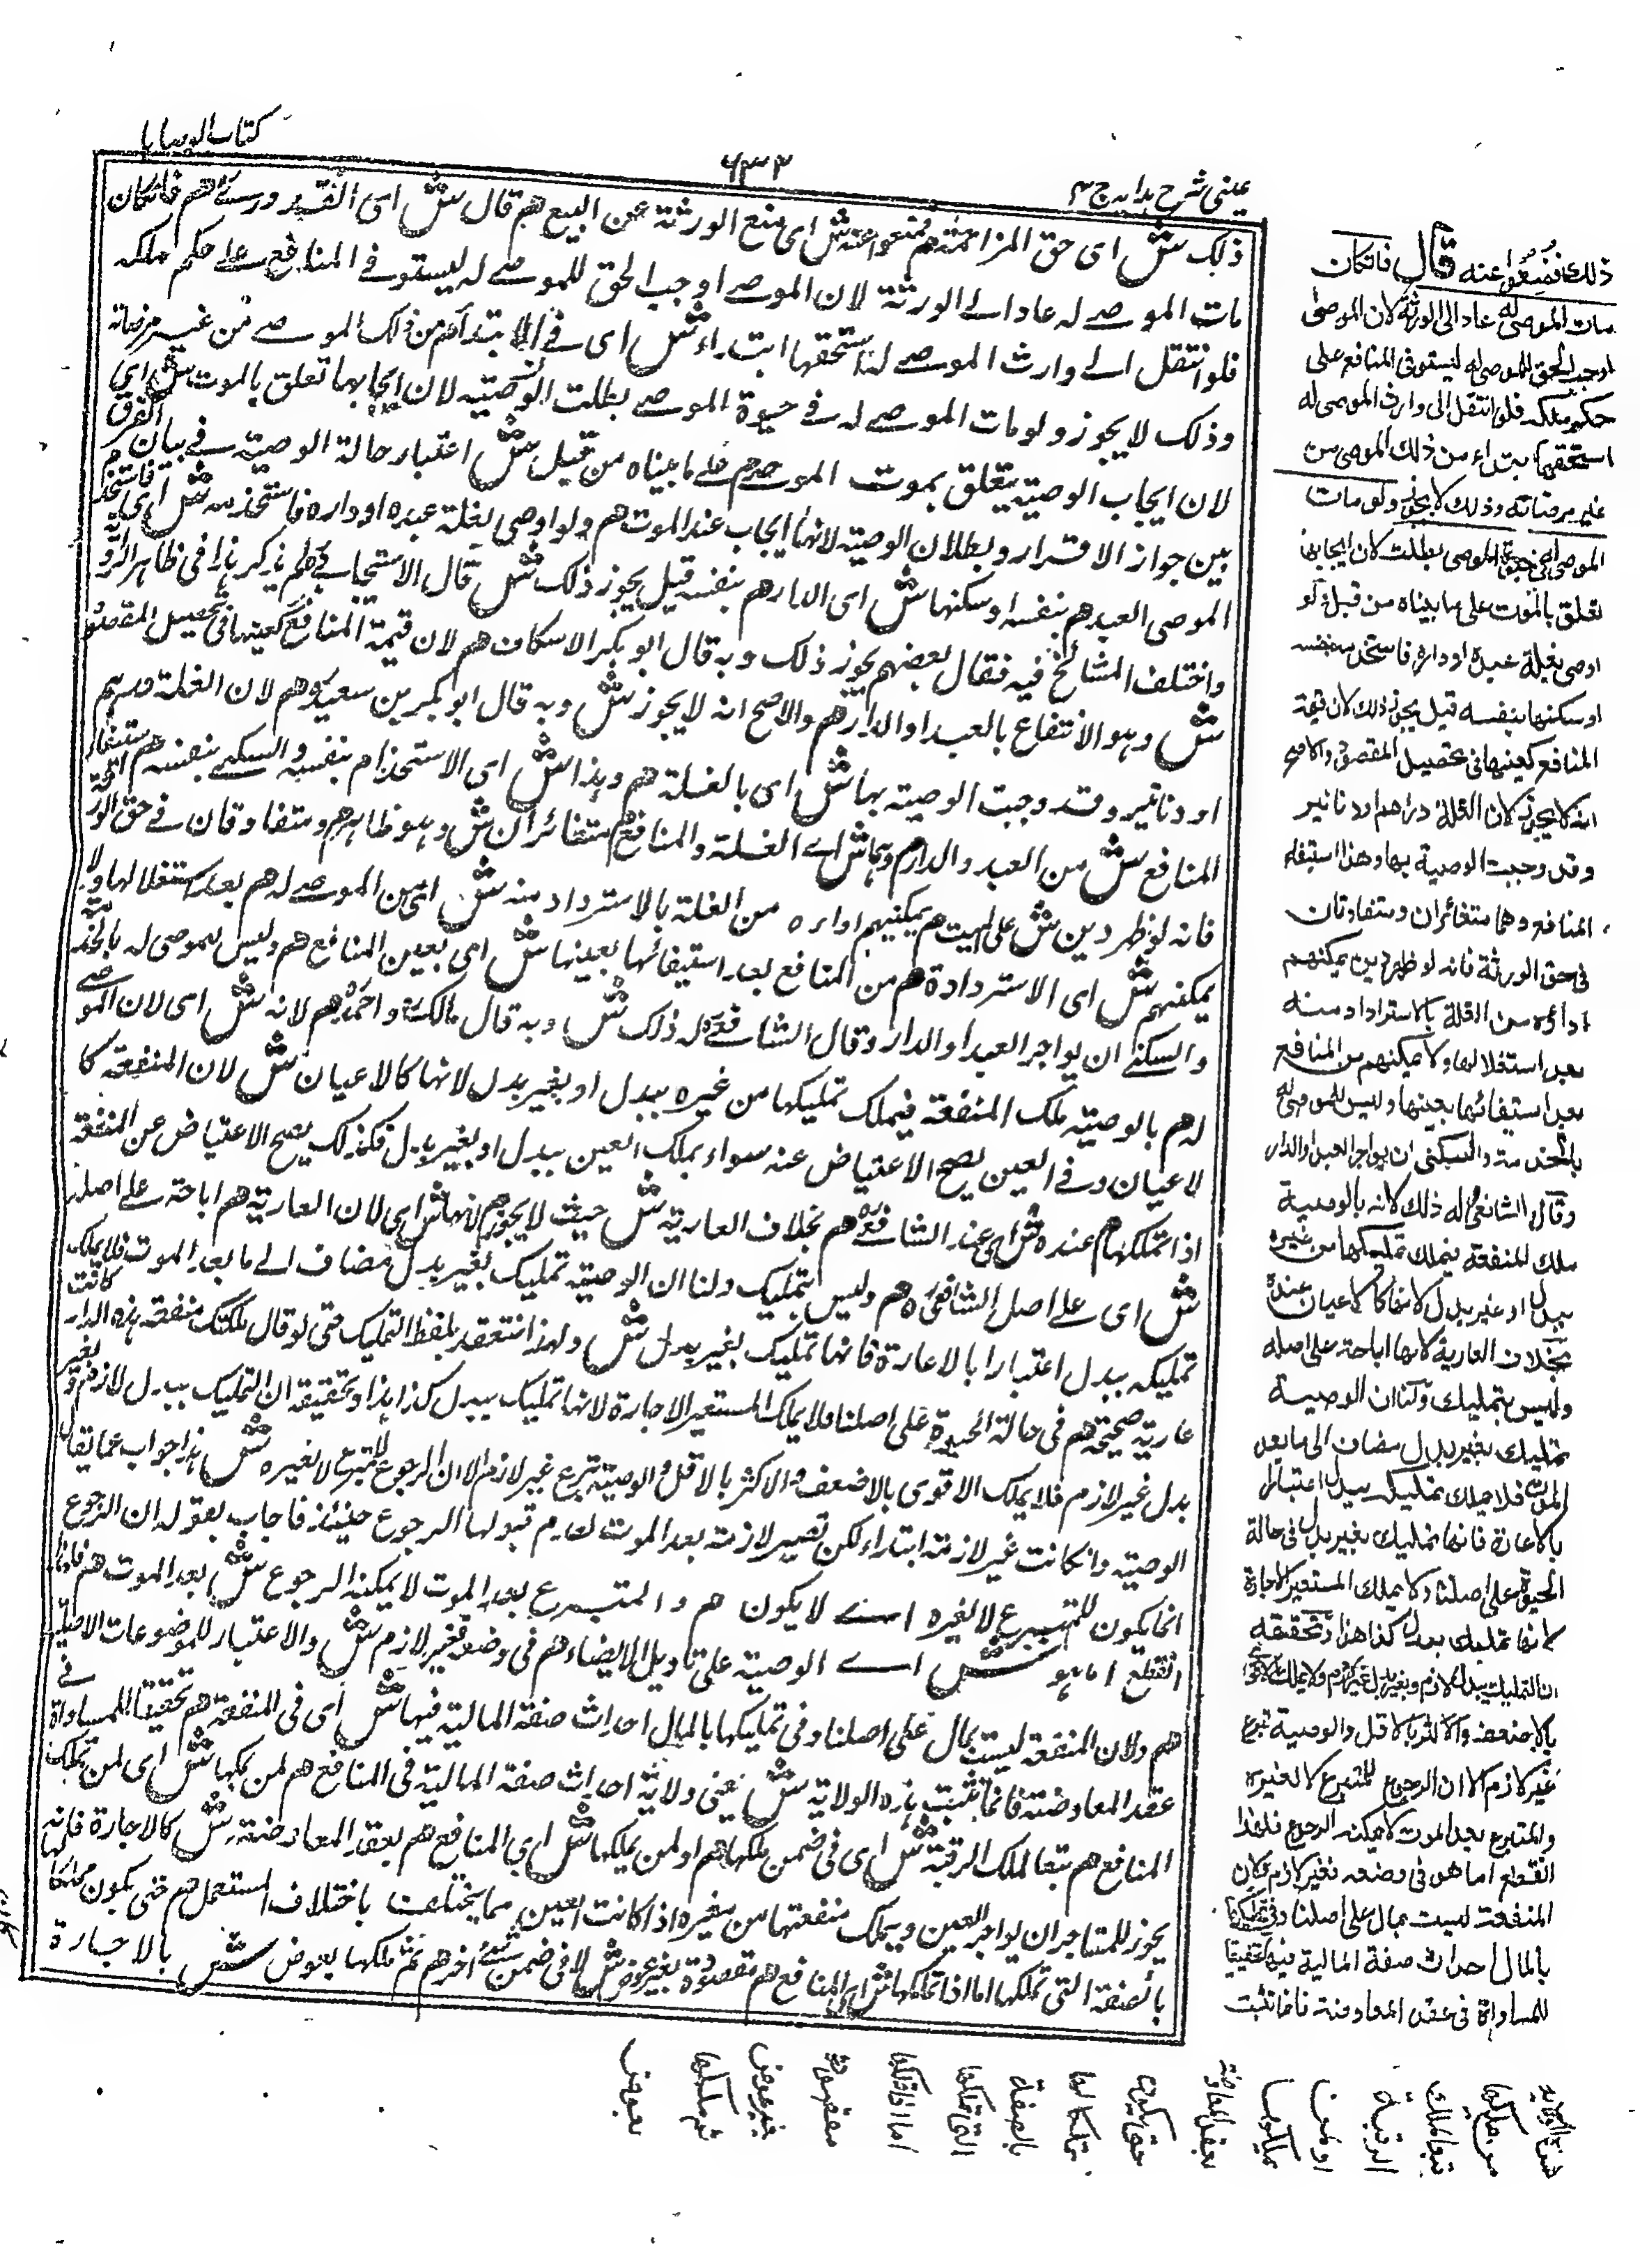 كتاب الوصايا
٦٣٢
عينى شرح هدايه ج ٣
ذلك ش اى حق المزاحمة هم فمنعوا عنه ش اى منع الورثة عن البيع هم قال ش اى القدورى هم فان كان
مات الموصے له عاد الے الورثة لان الموصے اوجب الحق للموصے له ليستوفے المنافع علے حكم ملكه
فلو انتقل الے وارث الموصے له استحقها ابتداء ش اى فے الابتداء هم من ذلك الموصے من غير مرضاته
وذلك لا يجوز ولو مات الموصے له فے حيوة الموصے بطلت الوصية لان ايجابها تعلق بالموت ش اى
لان ايجاب الوصية يتعلق بموت الموصے هم علے ما بيناه من قبل ش اعتبار حالة الوصية فے بيان الفرق
بين جواز الاقرار وبطلان الوصية لانها ايجاب عند الموت هم ولو اوصى بغلة عبده او داره فاستخدمه ش اى فاستخدم
الموصى العبد هم بنفسه او سكنها ش اى الدار هم بنفسه قيل يجوز ذلك ش قال الاسبيجابے لم يذكر هذا فى ظاهر الرواية
واختلف المشائخ فيه فقال بعضهم يجوز ذلك وبه قال ابو بكر الاسكاف هم لان قيمة المنافع كعينها فى تحصيل المقصود
ش وهو الانتفاع بالعبد او الدار هم والاصح انه لا يجوز ش وبه قال ابو بكر بن سعيد هم لان الغلة دراهم
او دنانير وقد وجبت الوصية بها ش اى بالغلة هم وهذا ش اى الاستخدام بنفسه والسكنے بنفسه هم استيفاء
المنافع ش من العبد والدار هم وهما ش اے الغلة والمنافع هم متغائران ش وهو ظاهر هم ومتفاوتان فے حق الورثة
فانه لو ظهر دين ش على الميت هم يمكنهم اداءه من الغلة بالاسترداد منه ش اى من الموصے له هم بعد استغلالها ولا
يمكنهم ش اى الاسترداد هم من المنافع بعد استيفائها بعينها ش اى بعين المنافع هم وليس للموصى له بالخدمة
والسكنے ان يواجر العبد او الدار وقال الشافعے له ذلك ش وبه قال مالك واحمد هم لانه ش اى لان الموصے
له هم بالوصية ملك المنفعة فيملك تمليكها من غيره ببدل او بغير بدل لانها كالاعيان ش لان المنفعة كا
لاعيان وفے العين يصح الاعتياض عنه سواء يملك العين ببدل او بغير بدل فكذلك يصح الاعتياض عن المنفعة
اذا تملكها هم عنده ش اى عند الشافعے هم بخلاف العارية ش حيث لا يجوز هم لانها ش اى لان العارية هم اباحة علے اصله
ش اى علے اصل الشافعى هم وليس بتمليك ولنا ان الوصية تمليك بغير بدل مضاف الے ما بعد الموت فلا يملك
تمليكه ببدل اعتبارا بالاعارة فانها تمليك بغير بدل ش ولهذا تنعقد بلفظ التمليك حتى لو قال ملكتك منفعة هذه الدار كانت
عارية صحيحة هم فى حالة الحيوة على اصلنا ولا يملك المستعير الاجارة لانها تمليك ببدل كذا هذا وتحقيقه ان التمليك ببدل لازم هم وبغير
بدل غير لازم فلا يملك الاقوى بالاضعف والاكثر بالاقل والوصية تبرع غير لازم الا ان الرجوع للمتبرع لا لغيره ش هذا جواب عما يقال
الوصية وان كانت غير لازمة ابتداء لكن تصير لازمة بعد الموت لعدم قبولها الرجوع حينئذ فاجاب بقوله ان الرجوع
انما يكون للمتبرع لا لغيره اے لا يكون هم والمتبرع بعد الموت لا يمكنه الرجوع ش بعد الموت هم فلهذا
انقطع اما هو ش اے الوصية على تاويل الايصاء هم فى وضعه فغير لازم ش والاعتبار للموضوعات الاصلية
هم ولان المنفعة ليست بمال على اصلنا وفى تمليكها بالمال احداث صفة المالية فيها ش اى فى المنفعة هم تحقيقا للمساواة فے
عقد المعاوضة فانما تثبت هذه الولاية ش يعنى ولاية احداث صفة المالية فى المنافع هم لمن يملكها ش اى لمن يملك
المنافع هم تبعا لملك الرقبة ش اى فى ضمن ملكها هم او لمن يملكها ش اى المنافع هم بعقد المعاوضة ش كالاجارة فانه
يجوز للمستاجر ان يواجر العين ويملك منفعتها من غيره اذا كانت العين مما يختلف باختلاف المستعمل هم حتى يكون مملكا لها
بالصفة التى تملكها اما اذا تملكها ش اى المنافع هم مقصودة بغير عوض ش لا فى ضمن شئ اخر هم ثم ملكها بعوض ش بالاجارة
ذلك فمنعوا عنه قال فان كان
مات الموصى له عاد الى الورثة لان الموصى
اوجب الحق للموصى له ليستوفى المنافع على
حكم ملكه فلو انتقل الى وارث الموصى له
استحقها ابتداء من ذلك الموصى من
غير مرضاته وذلك لا يجوز ولو مات
الموصى له فى حيوة الموصى بطلت لان ايجابها
تعلق بالموت على ما بيناه من قبل ولو
اوصى بغلة عبده او داره فاستخدمه بنفسه
او سكنها بنفسه قيل يجوز ذلك لان قيمة
المنافع كعينها فى تحصيل المقصود والاصح
انه لا يجوز لان الغلة دراهم او دنانير
وقد وجبت الوصية بها وهذا استيفاء
المنافع وهما متغائران ومتفاوتان
فى حق الورثة فانه لو ظهر دين يمكنهم
اداؤه من الغلة بالاسترداد منه
بعد استغلالها ولا يمكنهم من المنافع
بعد استيفائها بعينها وليس للموصى له
بالخدمة والسكنى ان يواجر العبد والدار
وقال الشافعى له ذلك لانه بالوصية
ملك المنفعة فيملك تمليكها من غيره
ببدل او غير بدل لانها كالاعيان عنده
بخلاف العارية لانها اباحة على اصله
وليس بتمليك ولنا ان الوصية
تمليك بغير بدل مضاف الى ما بعد
الموت فلا يملك تمليكه ببدل اعتبارا
بالاعارة فانها تمليك بغير بدل فى حالة
الحيوة على اصلنا ولا يملك المستعير الاجارة
لانها تمليك ببدل كذا هذا وتحقيقه
ان التمليك ببدل لازم وبغير بدل غير لازم ولا يملك الاقوى
بالاضعف والاكثر بالاقل والوصية تبرع
غير لازم الا ان الرجوع للمتبرع لا لغيره
والمتبرع بعد الموت لا يمكنه الرجوع فلهذا
انقطع اما هو فى وضعه فغير لازم ولان
المنفعة ليست بمال على اصلنا وفى تمليكها
بالمال احداث صفة المالية فيها تحقيقا
للمساواة فى عقد المعاوضة فانما تثبت
هذه الولاية
لمن يملكها
تبعا لملك
الرقبة
او لمن
يملكها
بعقد المعاوضة
حتى يكون
مملكا لها
بالصفة
التى تملكها
اما اذا تملكها
مقصودة
بغير عوض
ثم ملكها
بعوض